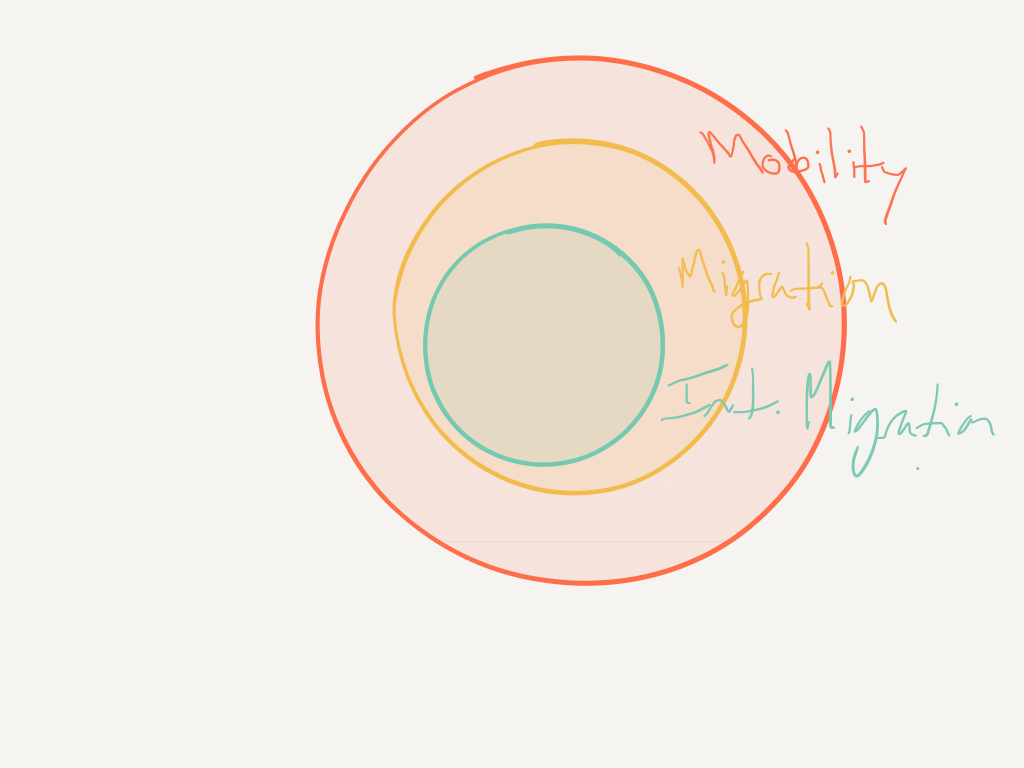 Mobility
Migration
Int. Migration